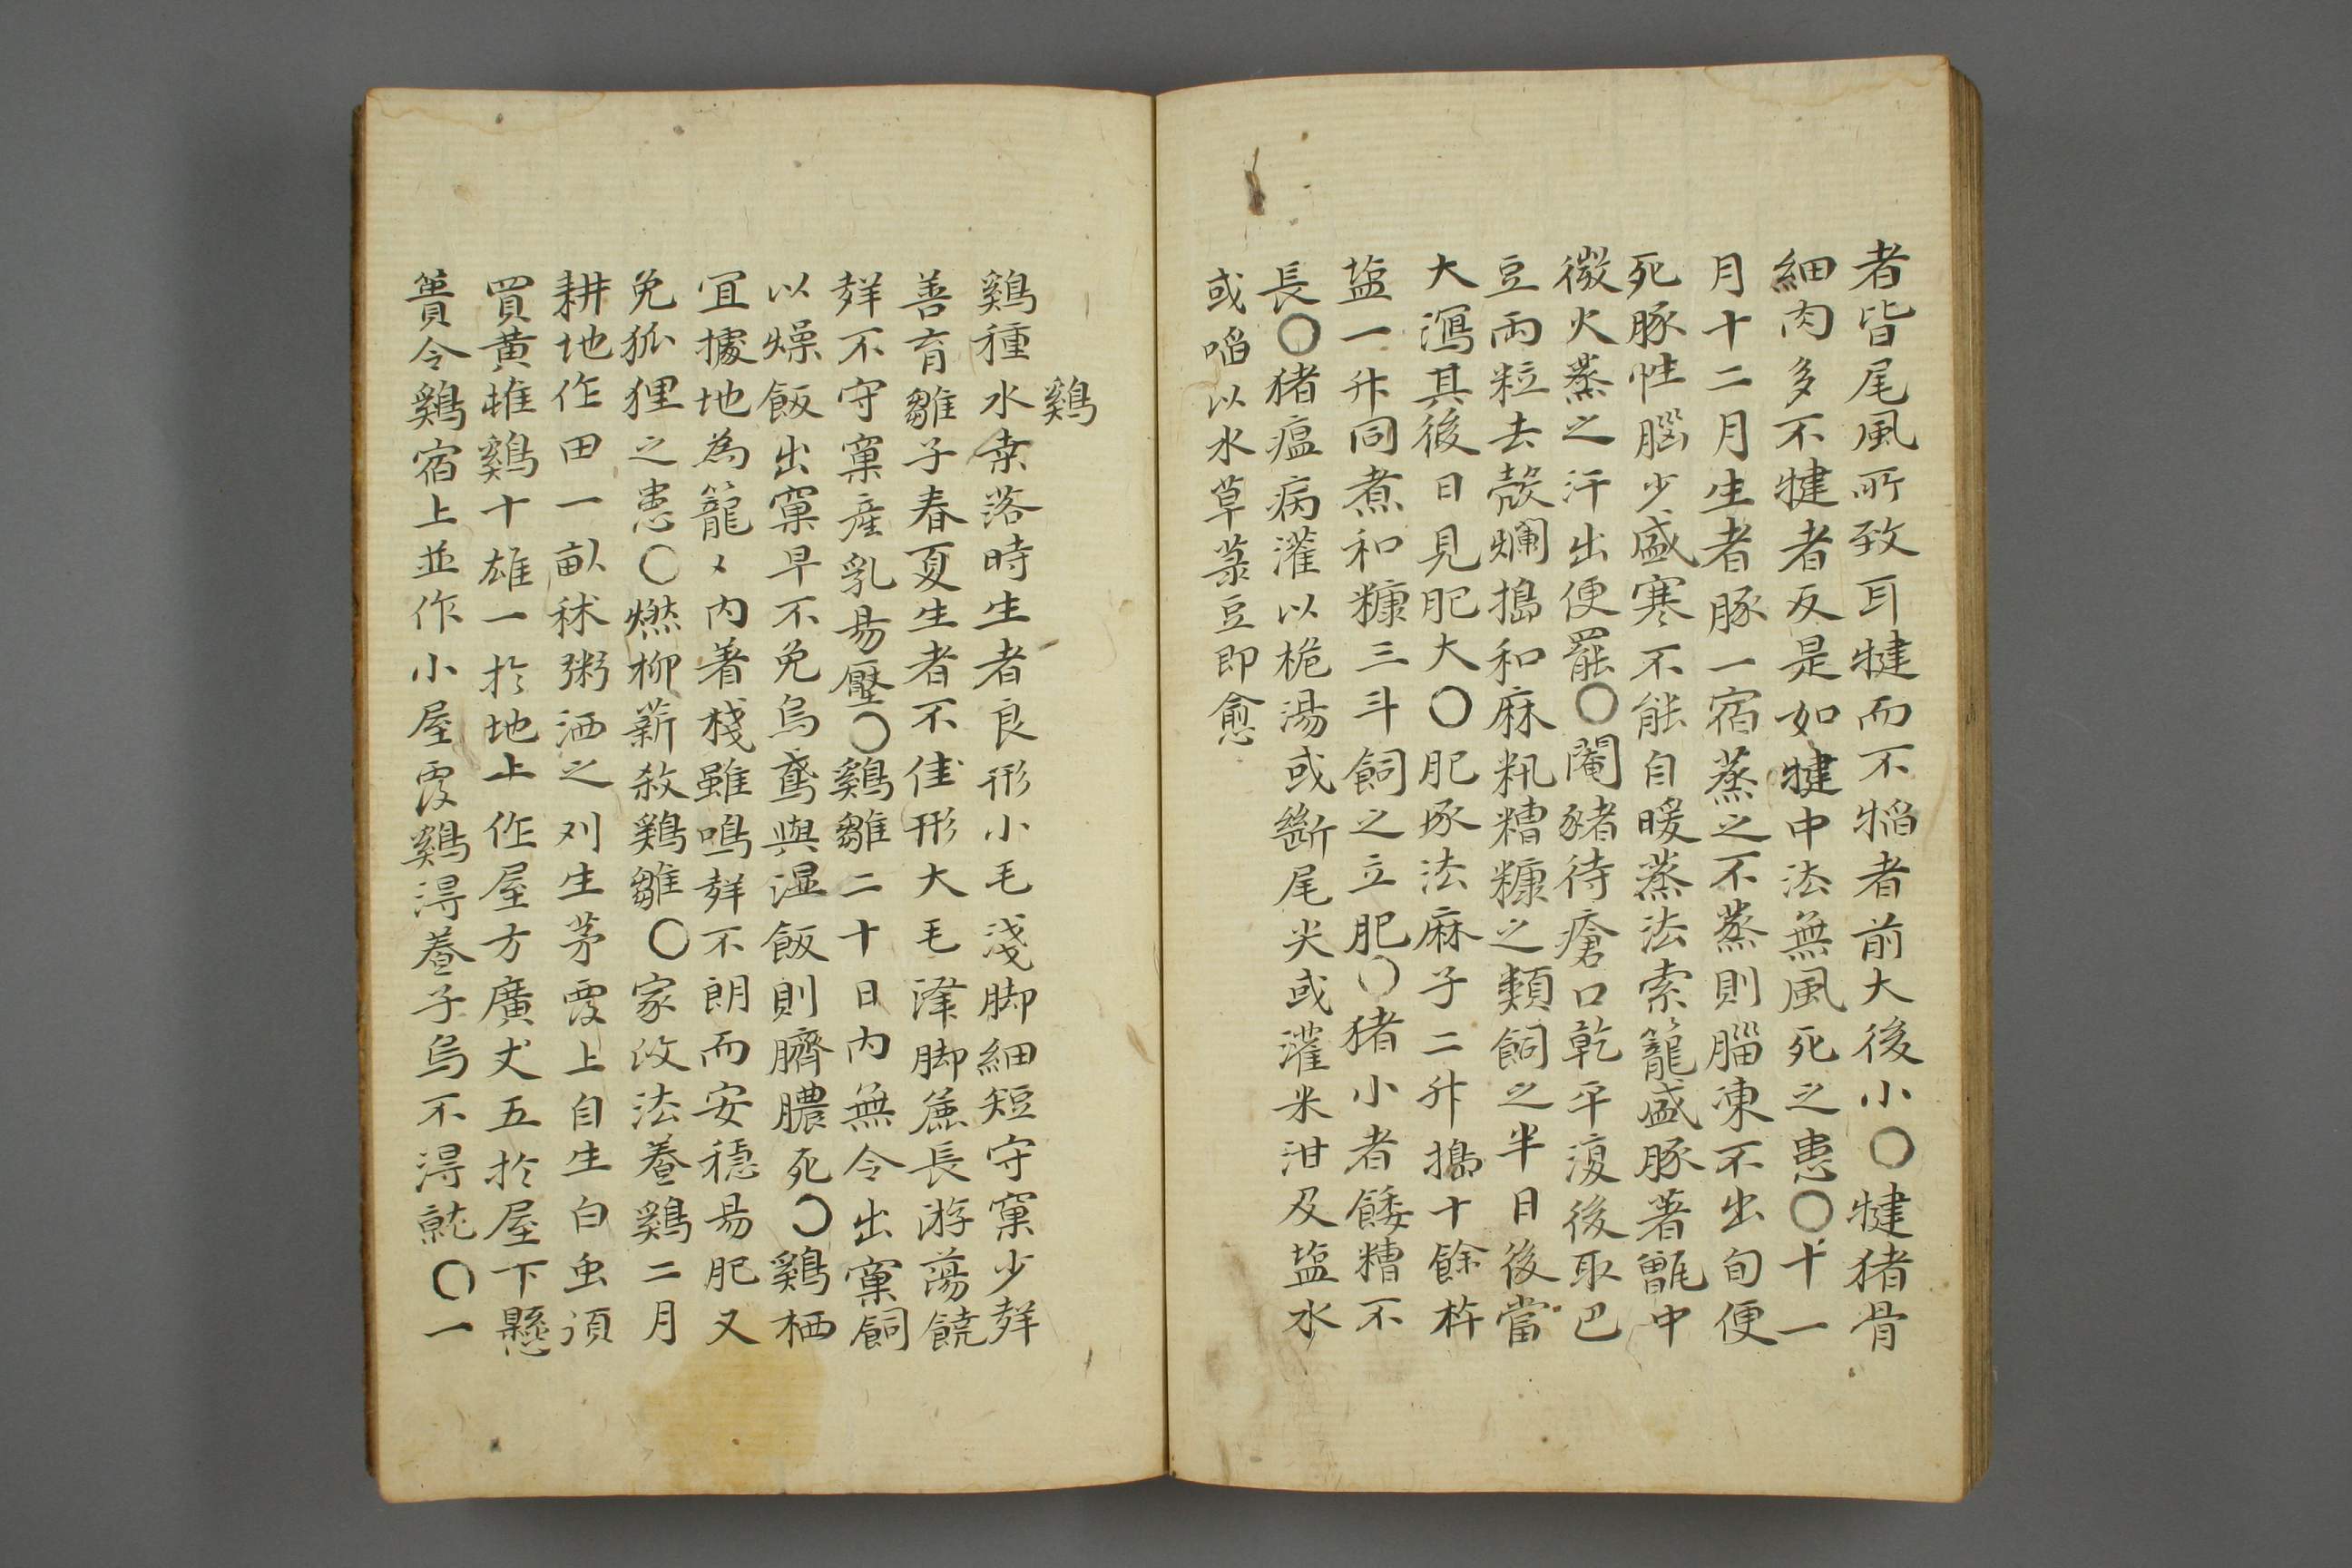 者皆尾風所致耳犍而不㨶者前大後小〇犍猪骨
細肉多不犍者反是如犍中法無風死之患〇十一
月十二月生者豚一宿蒸之不蒸則腦凍不出旬便
死豚性腦少盛寒不能自暖蒸法索籠盛豚著甑中
微火蒸之汗出便罷〇閹豬待瘡口乾平復後取巴
豆両粒去殻爛搗和麻籸糟糠之類飼之半日後當
大瀉其後日見肥大〇肥豚法麻子二升搗十餘杵
盐一升同煮和糠三斗飼之立肥〇猪小者餧糟不
長〇猪瘟病灌以桅湯或斷尾尖或灌米泔及盐水
或啗以水草菉豆即愈
鷄
鷄種水桒落時生者良形小毛浅脚細短守窠少聲
善育雛子春夏生者不佳形大毛澤脚麄長游蕩饒
聲不守窠産乳易壓〇鷄雛二十日内無令出窠飼
以燥飯出窠早不免烏鳶與湿飯則臍膿死〇鷄栖
宜據地為籠〻内着棧雖鳴聲不朗而安穏易肥又
免狐狸之患〇燃柳薪殺鷄雛〇家政法養鷄二月
耕地作田一畒秫粥洒之刈生茅覆上自生白虫須
買黄雌鷄十雄一於地上作屋方廣丈五於屋下懸
簣令鷄宿上並作小屋覆鷄得養子烏不得就〇一